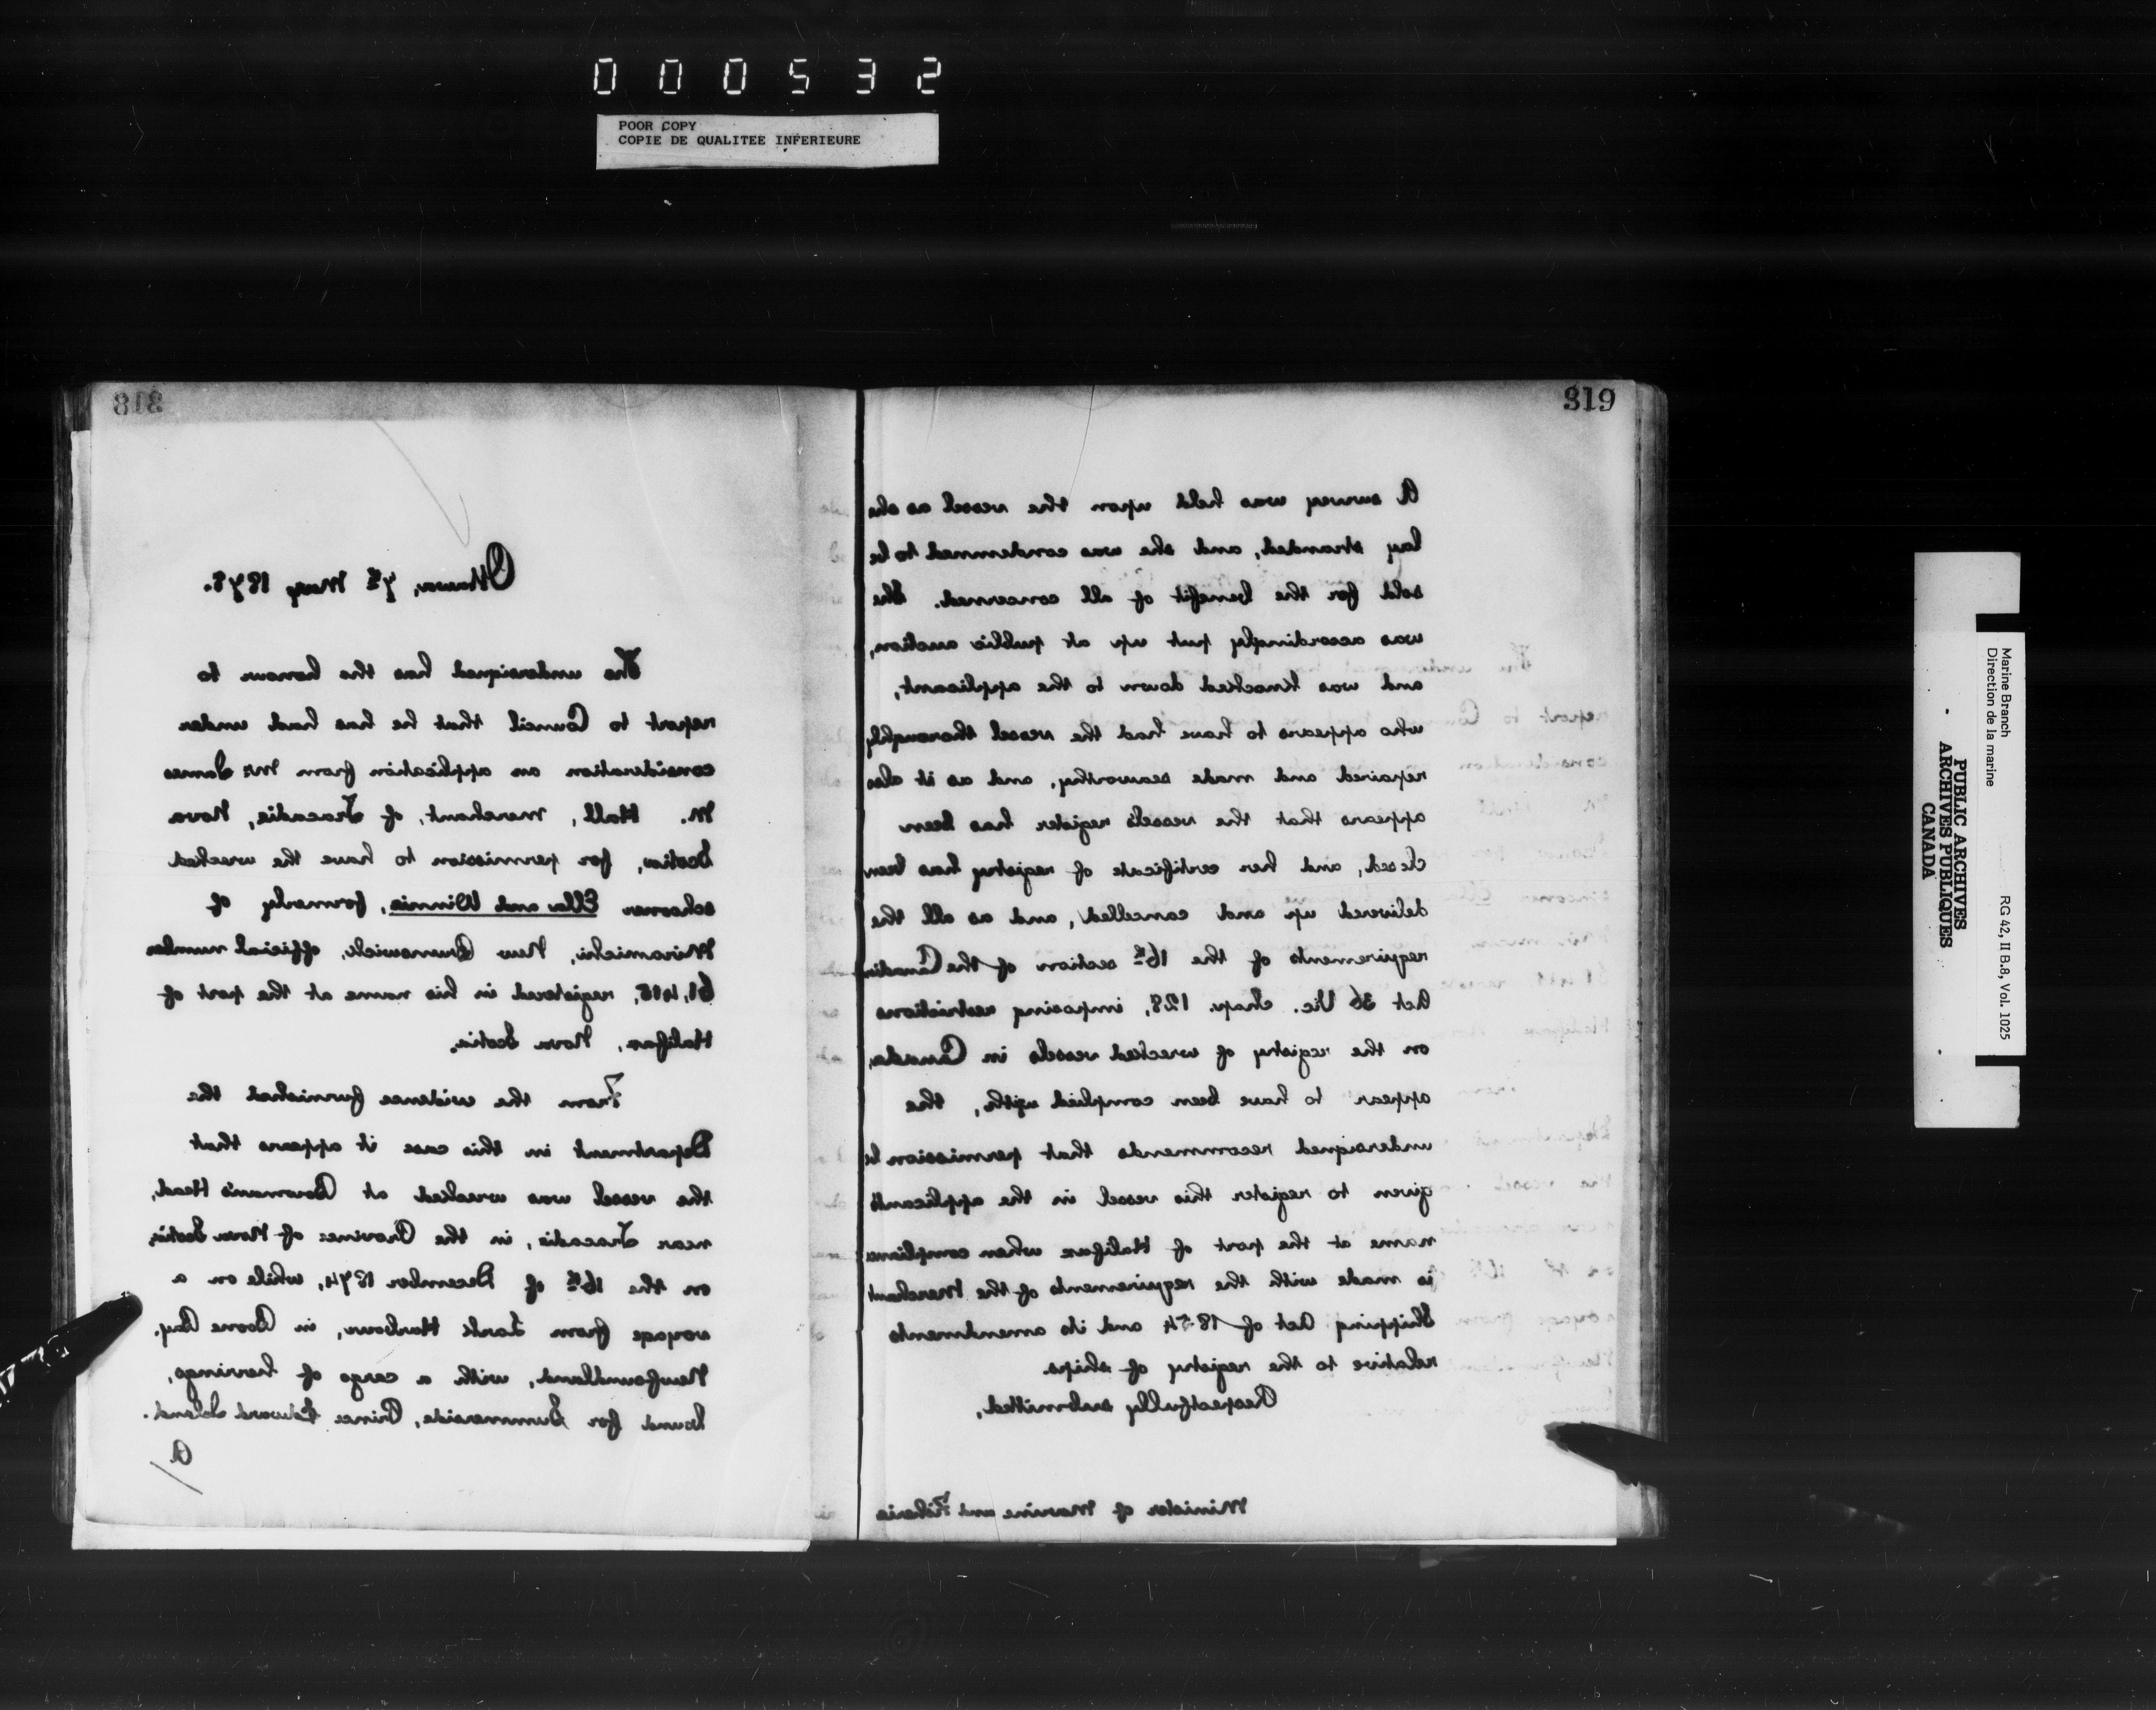 000532
POOR COPY
COPIE DE QUALITEE INFERIEURE
318
Ottawa, 7th May 1878.
The undersigned has the honour to
report to Council that he has had under
consideration an application from Mr. James
M. Hall, merchant, of Tracadie, Nova
Scotia, for permission to have the wrecked
schooner Ella and Winnie, formerly of
Miramichi, New Brunswick, official number
61,415, registered in his name at the port of
Halifax, Nova Scotia.
From the evidence furnished the
Department in this case it appears that
the vessel was wrecked at Bowman's Head,
near Tracadie, in the Province of Nova Scotia,
on the 16th of December 1874, while on a
voyage from Lark Harbour, in Bonne Bay,
Newfoundland, with a cargo of herrings,
bound for Summerside, Prince Edward Island.
A
319
A survey was held upon the vessel as she
lay stranded, and she was condemned to be
sold for the benefit of all concerned. She
was accordingly put up at public auction,
and was knocked down to the applicant,
who appears to have had the vessel thoroughly
repaired and made seaworthy, and as it also
appears that the vessel's register has been
closed, and her certificate of registry has been
delivered up and cancelled, and as all the
requirements of the 16th section of the Canadian
Act 36 Vic. Chap. 128, imposing restrictions
on the registry of wrecked vessels in Canada,
appear to have been complied with, the
undersigned recommends that permission be
given to register this vessel in the applicant's
name at the port of Halifax when compliance
is made with the requirements of the Merchant
Shipping Act of 1854 and its amendments
relative to the registry of ships.
Respectfully submitted,
Minister of Marine and Fisheries
Marine Branch
Direction de la marine
RG 42, II B.8, Vol. 1025
PUBLIC ARCHIVES
ARCHIVES PUBLIQUES
CANADA